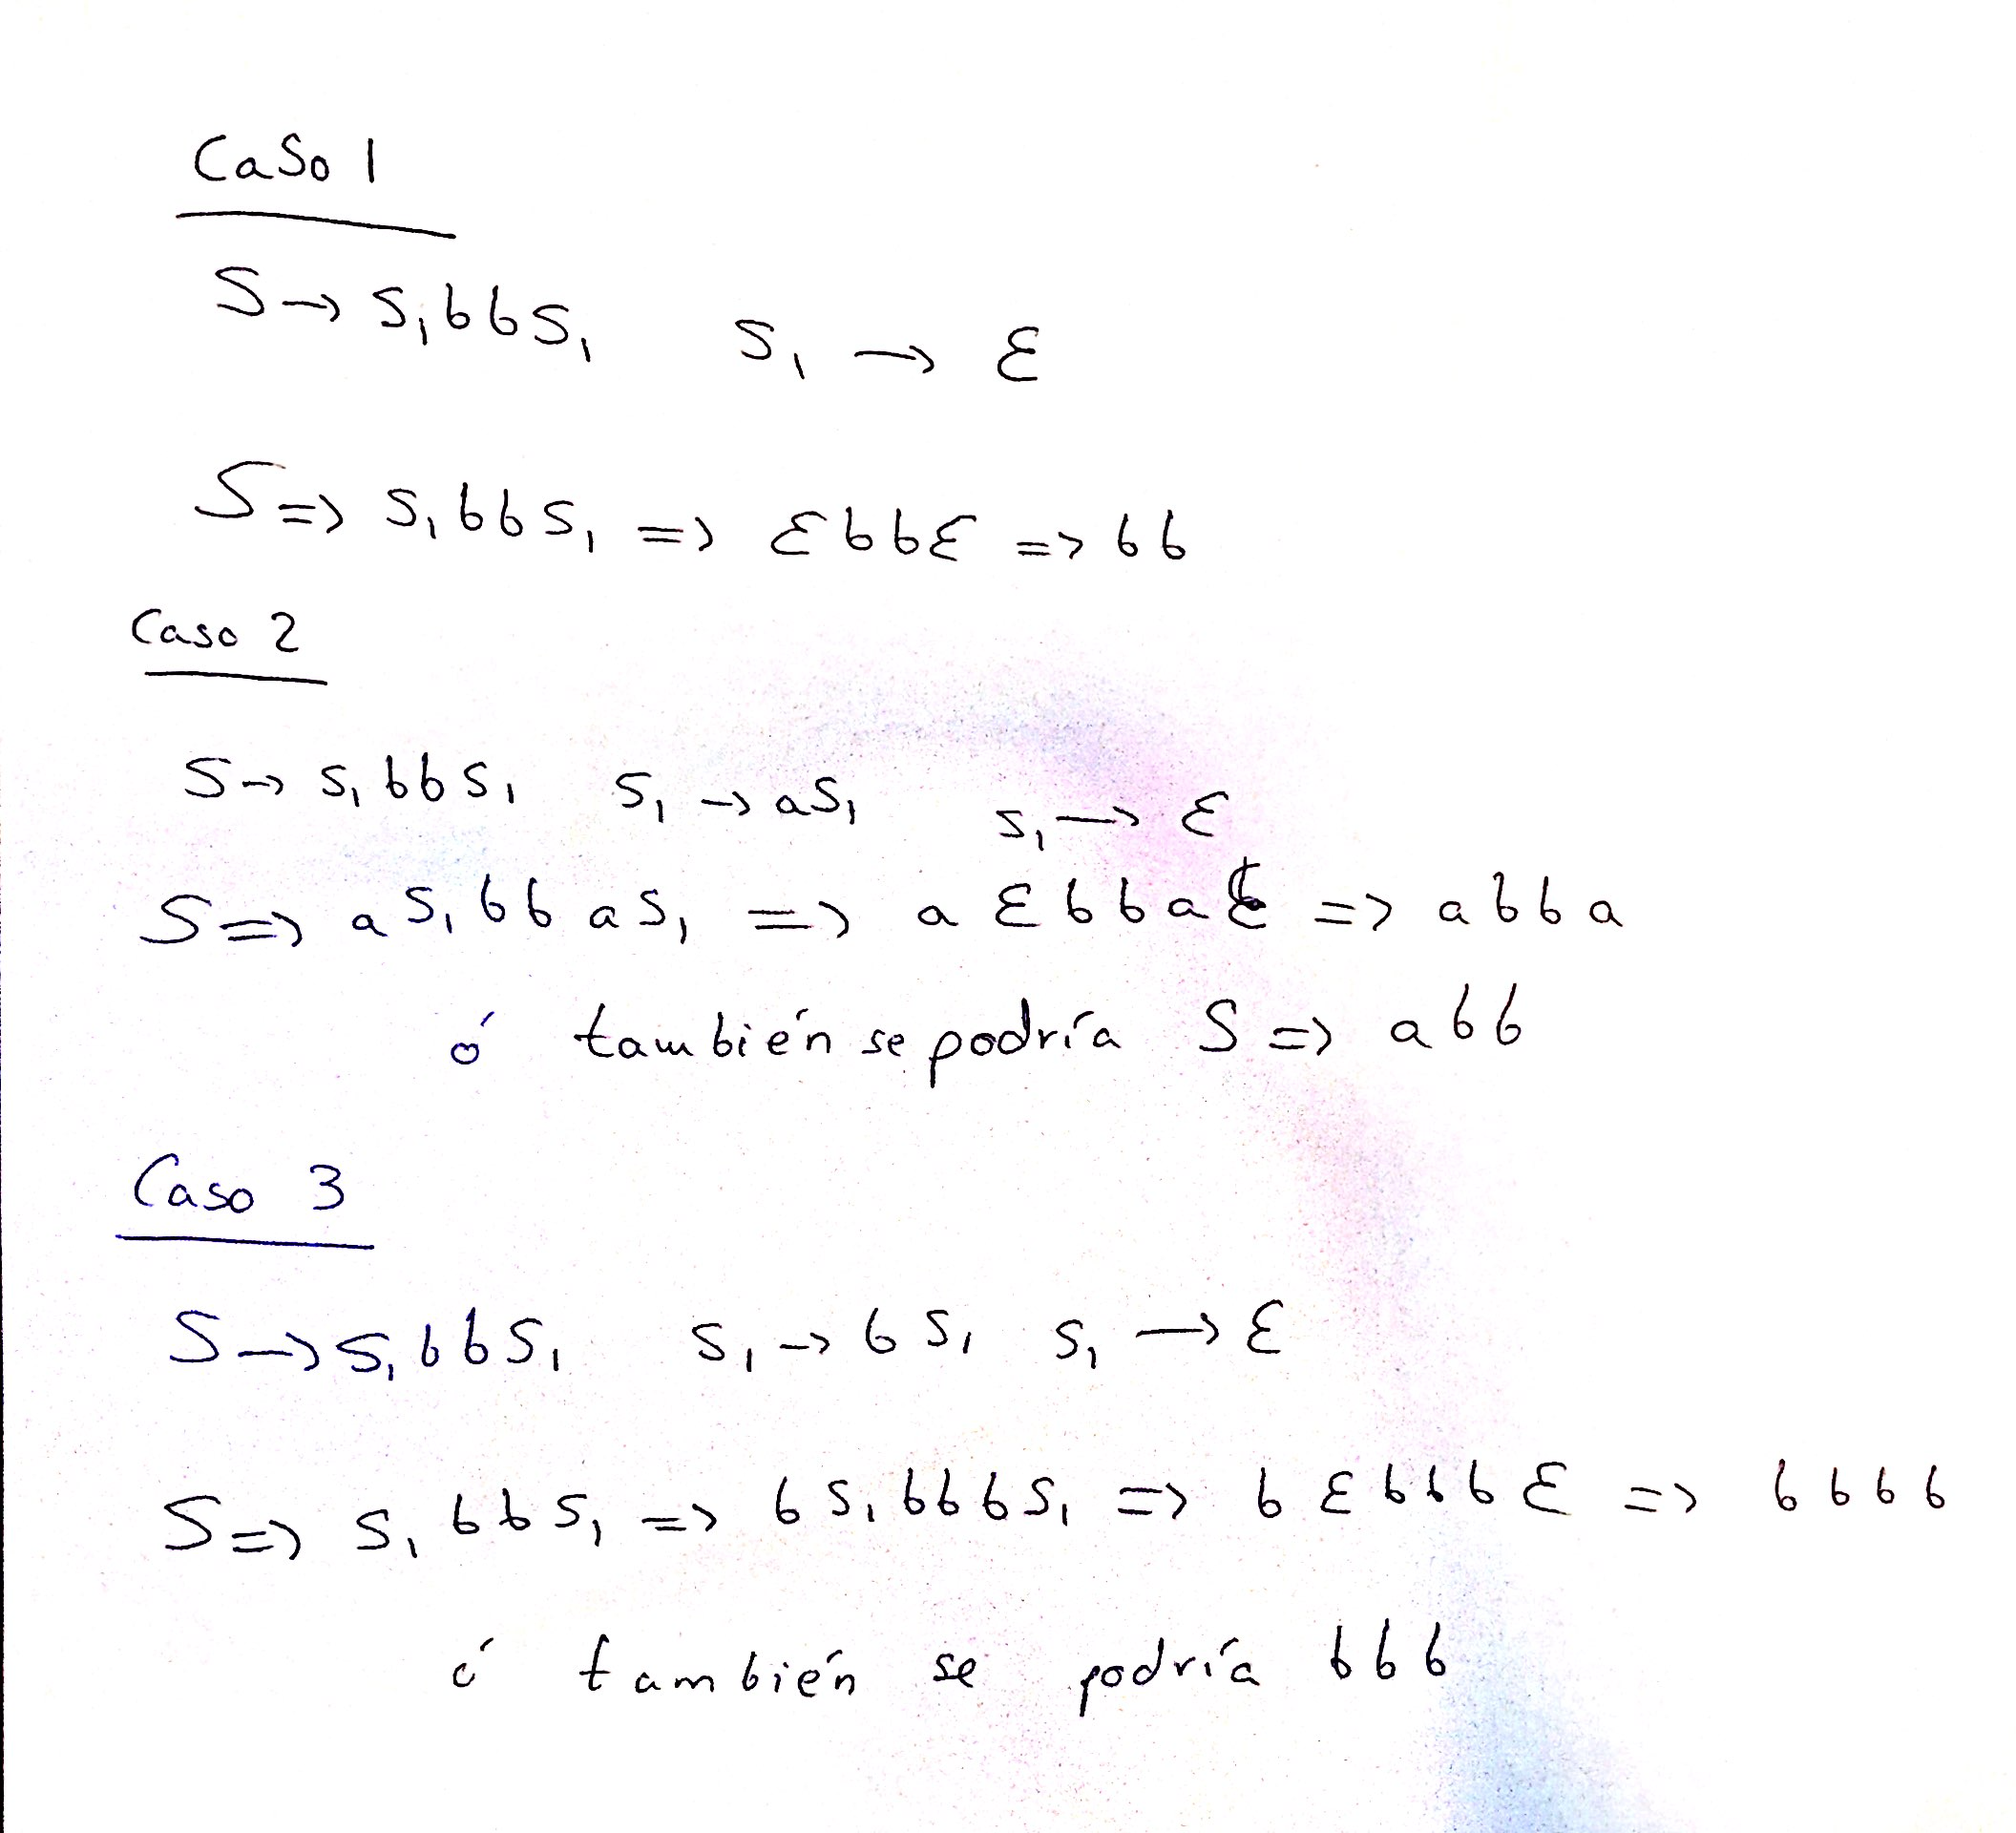 Caso 1
S → S₁bbS₁ S₁ → ε
S => S₁bbS₁ => εbbε => bb
Caso 2
S → S₁bbS₁ S₁ → aS₁ S₁ → ε
S => aS₁bbaS₁ => aεbbaε => abba
ó también se podría S => abb
Caso 3
S → S₁bbS₁ S₁ → bS₁ S₁ → ε
S => S₁bbS₁ => bS₁bbbS₁ => bεbbbε => bbbb
ó también se podría bbb